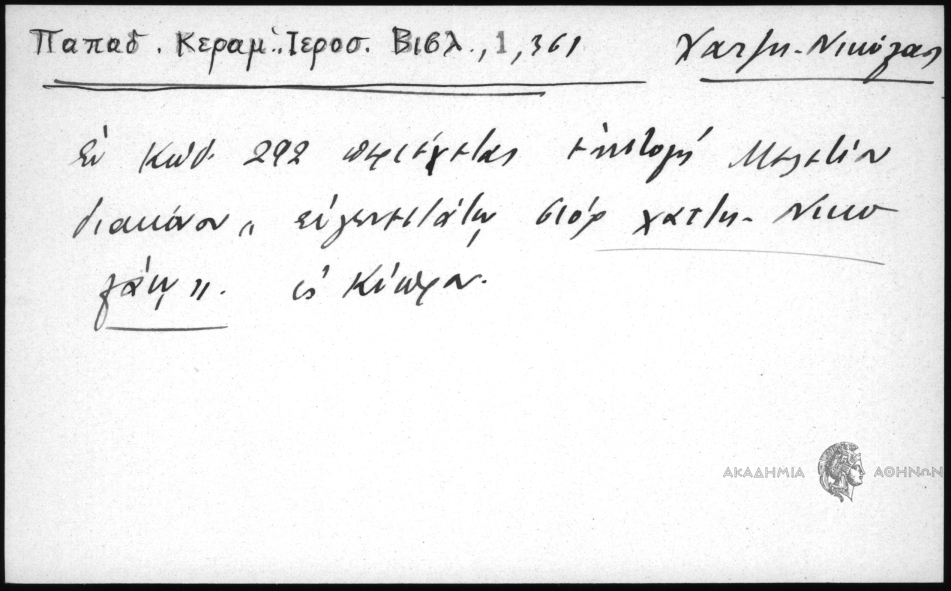 Παπαδ. Κεραμ. Ιεροσ. Βιβλ., 1, 361 Χατζη-Νικόλας
Ἐν Κώδ. 292 περιέχεται ἐπιστολὴ Μελετίου
διακόνου „ εὐγενεστάτῳ σιὸρ χατζη-Νικο
λάῳ „. εἰς Κύπρον.
ΑΚΑΔΗΜΙΑ ΑΘΗΝΩΝ